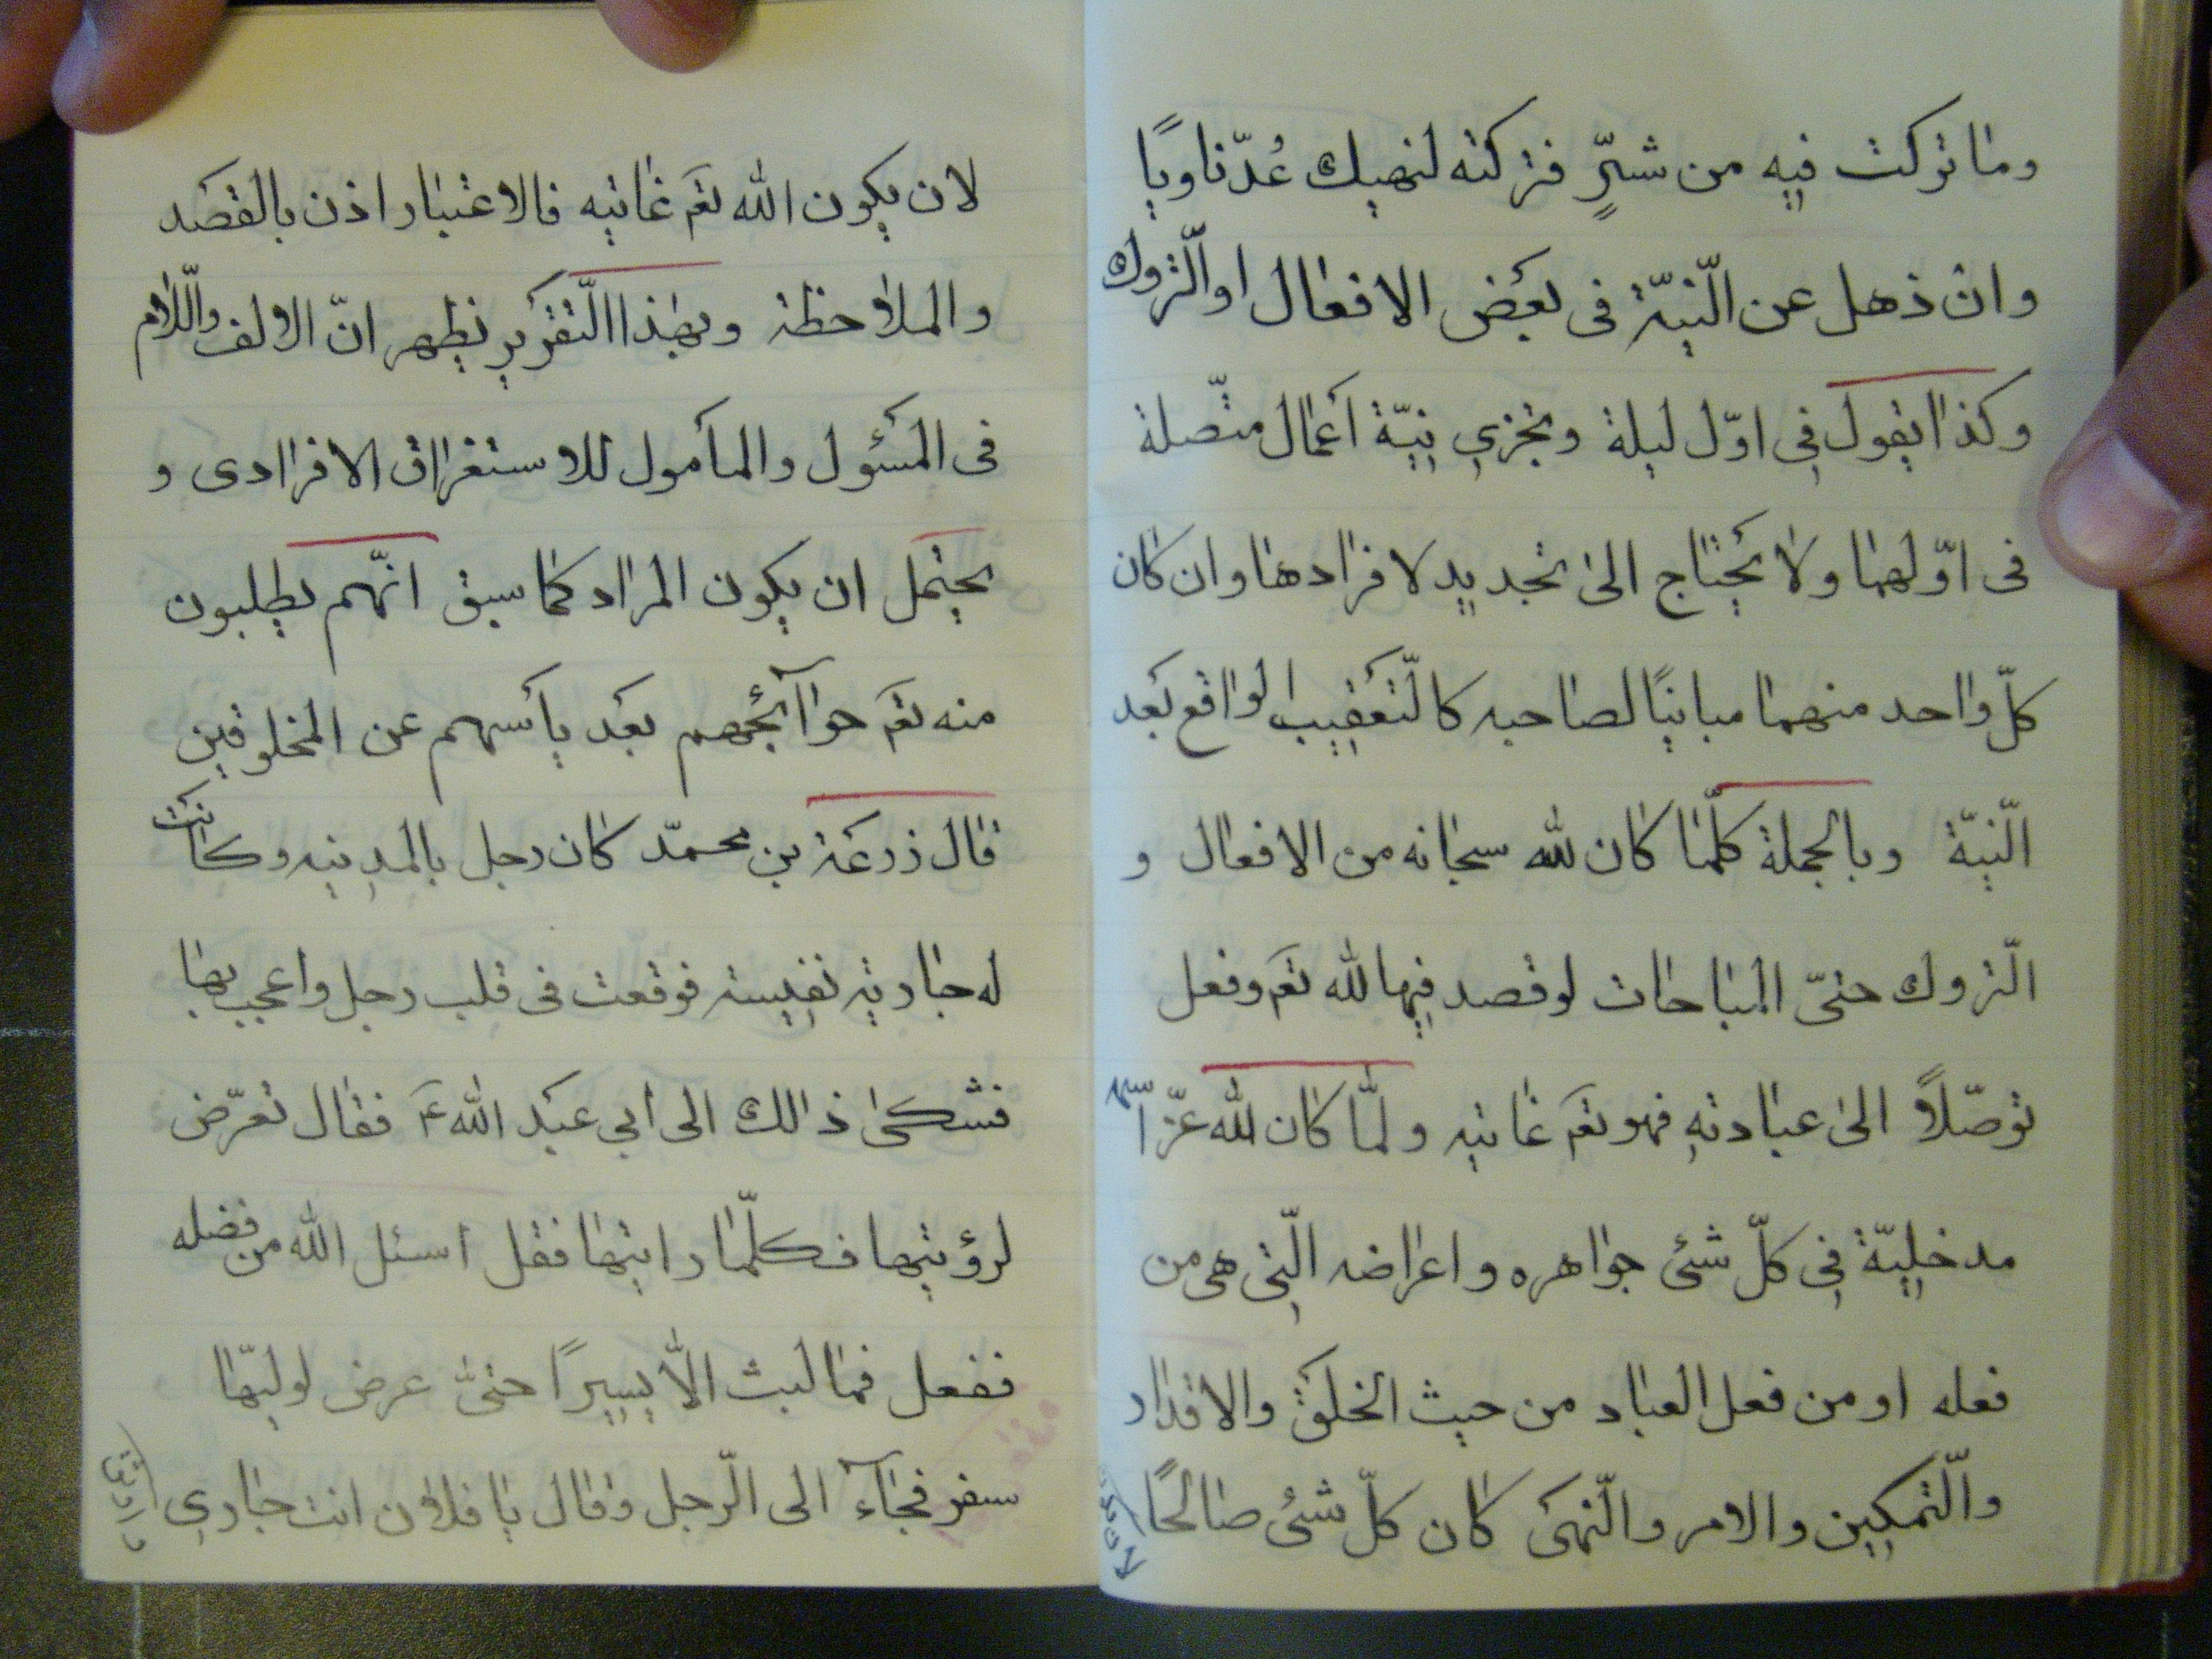 وما تركت فيه من شرٍّ فتركته لنهيك عُدّ ناويًا
وان ذهل عن النّيّة فى بعض الافعال او التّروك
وكذا يقول فى اوّل ليلة وتجزي نيّة اعمال متّصلة
فى اوّلها ولا يحتاج الى تجديد لافرادها وان كان
كلّ واحد منهما مباينًا لصاحبه كالتّعقيب الواقع بعد
النّيّة وبالجملة كلّما كان لله سبحانه من الافعال و
التّروك حتىّ المباحات لو قصد فيها لله تعَ وفعل
توصّلاً الى عبادته فهو تعَ غايته ولمّا كان لله عزّ اسمه
مدخليّة في كلّ شئ جواهره واعراضه الّتى هى من
فعله او من فعل العباد من حيث الخلق والاقدار
والتّمكين والامر والنّهى كان كلّ شئ صالحًا
لان يكون
لان يكون الله تعَ غايته فالاعتبار اذن بالقصد
والملاحظة وبهذا التّقرير يظهر انّ الالف واللّام
فى المسئول والمأمول للاستغراق الافرادى و
يحتمل ان يكون المراد كما سبق انّهم يطلبون
منه تعَ حوآئجهم بعد يأسهم عن المخلوقين
قال زرعة بن محمّد كان رجل بالمدينه وكانت
له جارية نفيسة فوقعت فى قلب رجل واعجب بها
فشكى ذالك الى ابي عبد الله عَ فقال تعرّض
لرؤيتها فكلّما رايتها فقل اسئل الله من فضله
ففعل فما لبث الاّ يسيرًا حتىّ عرض لوليّها
سفر فجآء الى الرّجل وقال يا فلان انت جاري